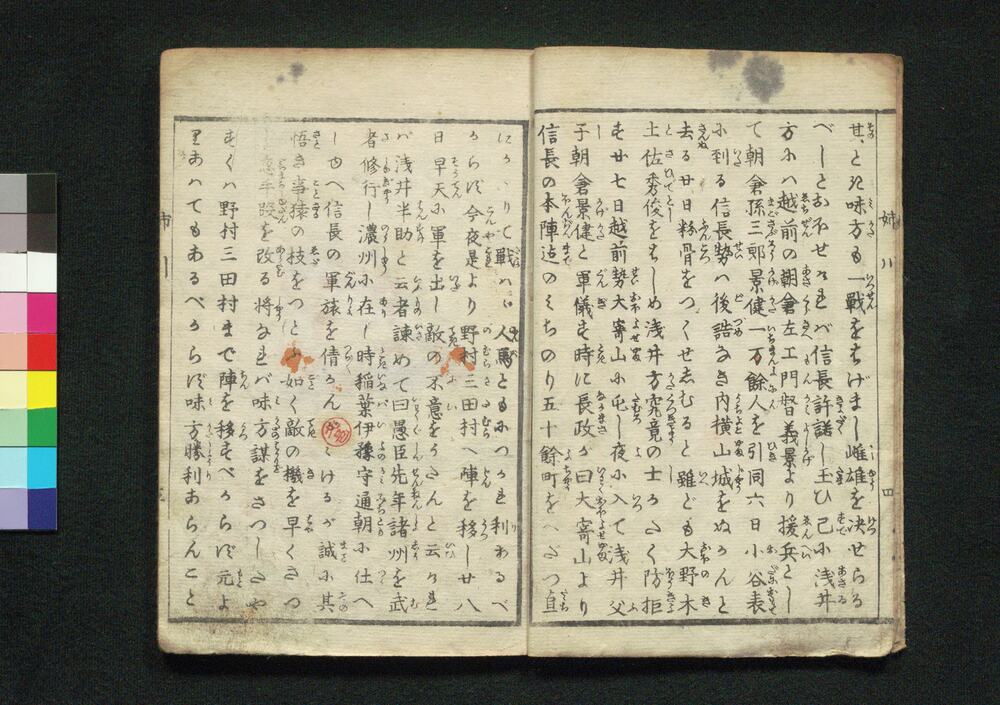 其、とき味方も一戦をとげまし雌雄を決せらる
べしとおふせければ信長許諾し玉ひ已に浅井
方には越前の朝倉左エ門督義景より援兵とし
て朝倉孫三郎景健一万餘人を引同六日小谷表
に到る信長勢は後詰なき内横山城をぬかんと
去る廿日粉骨をつくせしむると雖ども大野木
土佐秀俊をはじめ浅井方究竟の士かたく防拒
す廿七日越前勢大寄山に屯し夜に入て浅井父
子朝倉景健と軍儀す時に長政が曰大寄山より
信長の本陣迄のみちのり五十餘町をへだつ直
にかゝりて戦はゝ人馬ともにつかれ利あるべ
からず今夜是より野村三田村へ陣を移し廿八
日早天に軍を出し敵の不意をうたんと云けれ
ば浅井半助と云者諫めて曰愚臣先年諸州を武
者修行し濃州に在し時稲葉伊豫守通朝に仕へ
しゆへ信長の軍旅を倩かんがみけるが誠に其
悟き事猿の技をつとふ如く敵の機を早くさつ
し手段を改る将なれば味方謀をさつしたや
すくは野村三田村まで陣を移すべからず元よ
りあはてもあるべからず味方勝利あらんこと
姉川
四